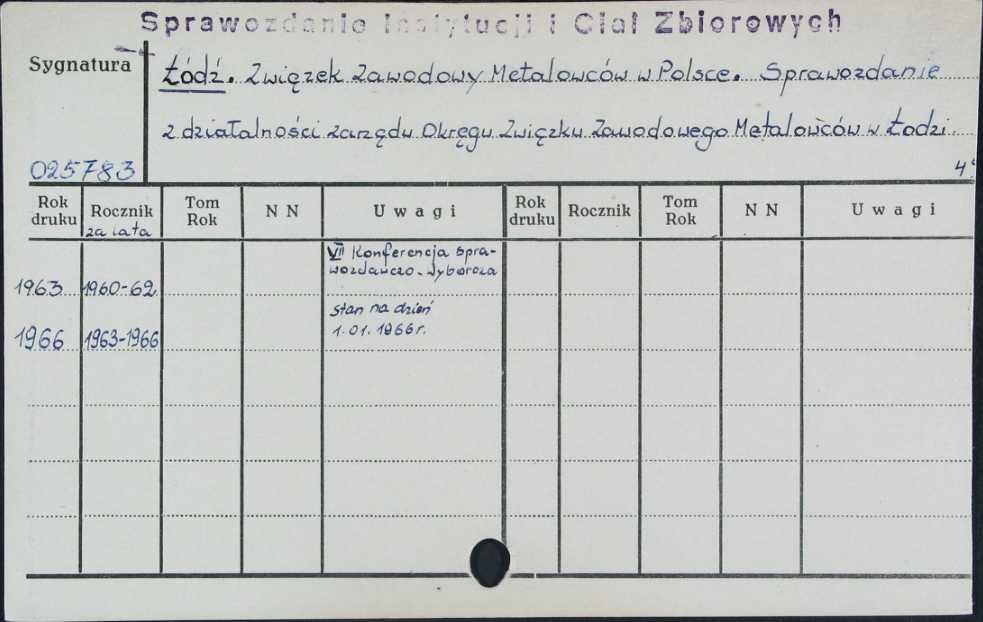 Sprawozdanie Instytucji i Ciał Zbiorowych
Sygnatura
Łódź. Związek Zawodowy Metalowców w Polsce. Sprawozdanie
z działalności zarządu Okręgu Związku Zawodowego Metalowców w Łodzi.
025783
4°
Rok druku Rocznik za lata Tom Rok N N U w a g i Rok druku Rocznik Tom Rok N N U w a g i
VII Konferencja spra-
wozdawczo-wyborcza
1963 1960-62
stan na dzień
1966 1963-1966 1.01.1966r.